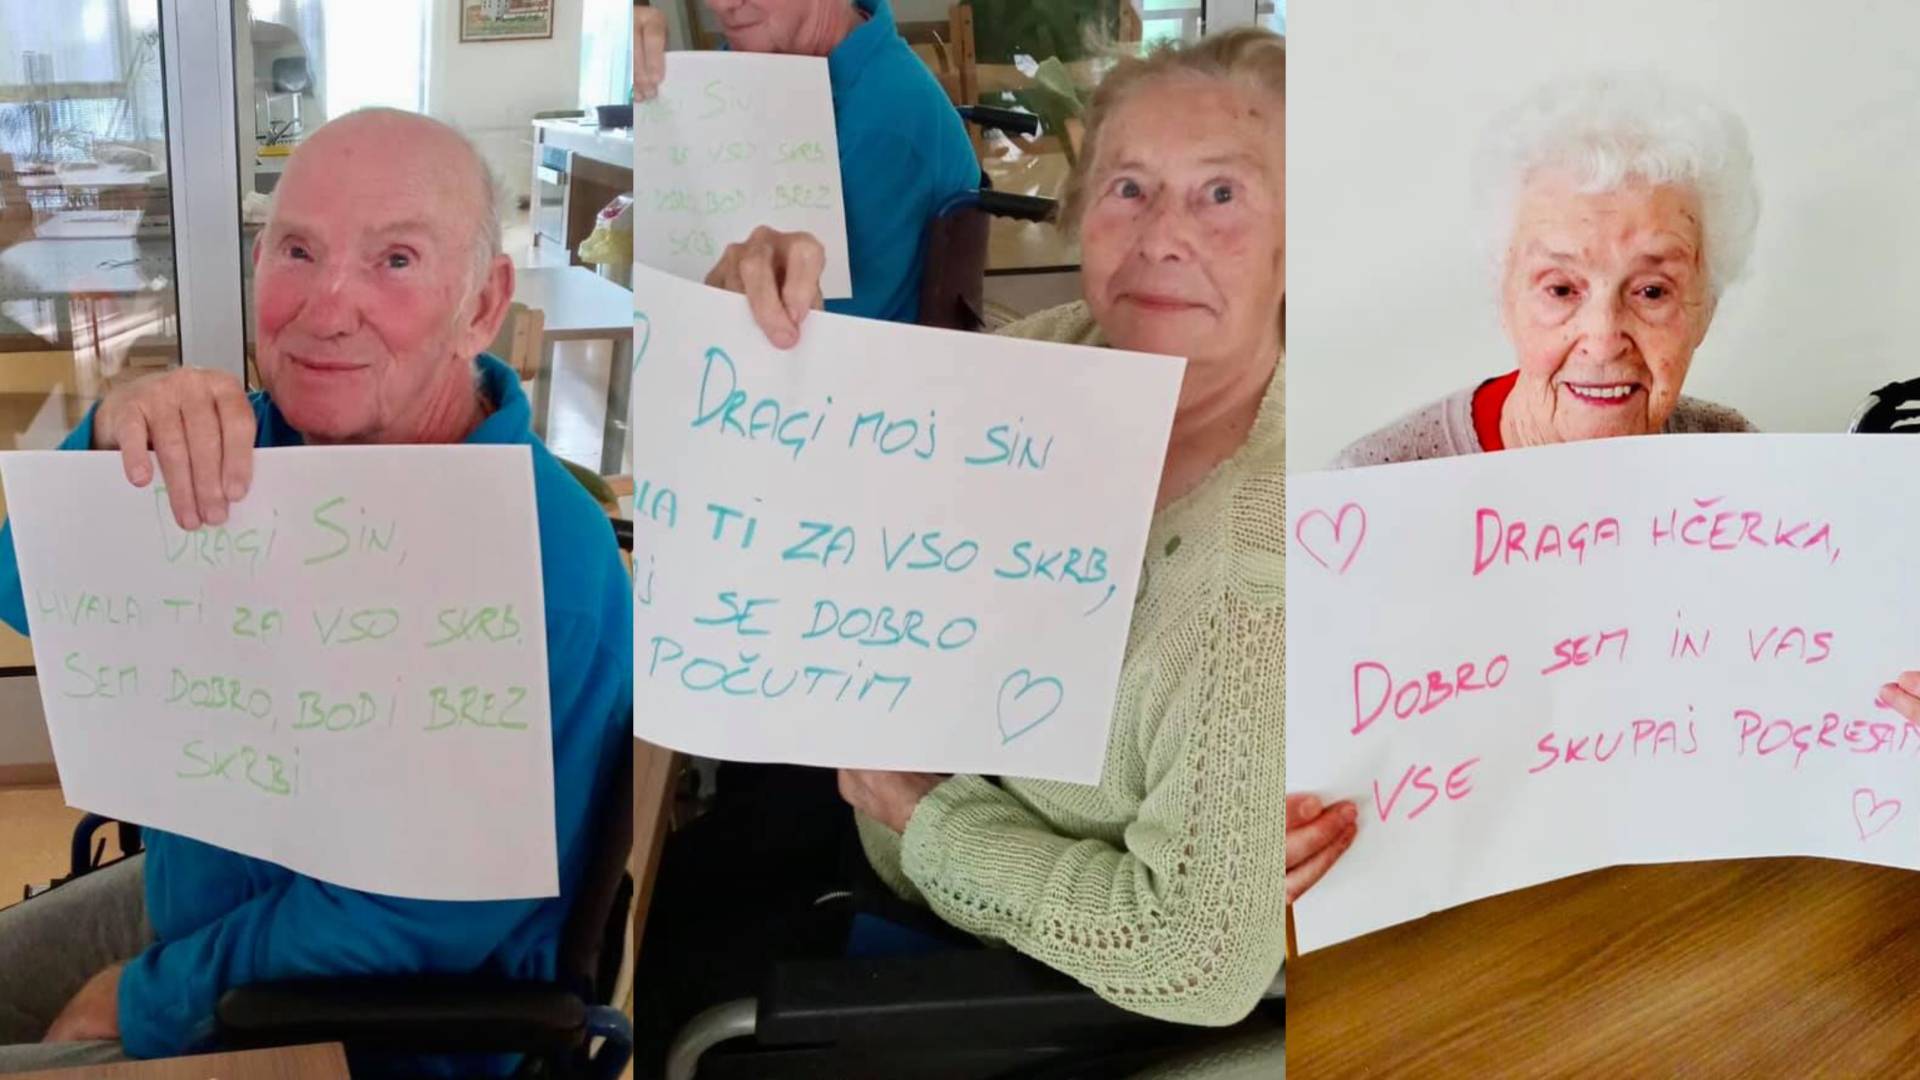 DRAGI SIN,
HVALA TI ZA VSO SKRB.
SEM DOBRO, BODI BREZ
SKRBI
SIN
ZA VSO SKRB
DOBRO, BODI BREZ
DRAGI MOJ SIN
TI ZA VSO SKRB,
SE DOBRO
POČUTIM
DRAGA HČERKA,
DOBRO SEM IN VAS
VSE SKUPAJ POGREŠAM